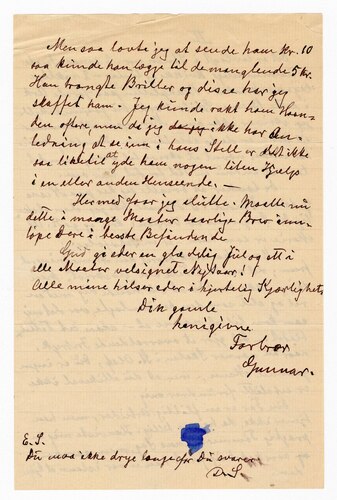 Men saa lovte jeg at sende ham Kr. 10
saa kunde han lægge til de manglende 5 kr.
Han trængte Briller og disse har jeg
skaffet ham. Jeg kunde rakt ham Haan-
den oftere, men da jeg ikke har An-
ledning at se inn i hans Stell er det ikke
saa liketil at yde ham nogen liten Hjelp
i en eller anden Henseende. —
Hermed faar jeg slutte. Maatte nu
dette i mange Maater taarlige Brev inn-
løpe Dere i beste Befindende.
Gud gi eder en glædelig Jul og ett i
alle Maater velsignet Nytaar!
Alle mine hilser eder i hjertelig Kjærlighet.
Din gamle
hengivne
Farbror
Gunnar.
E. S.
Du maa ikke drye længe før Du svarer
D. S.